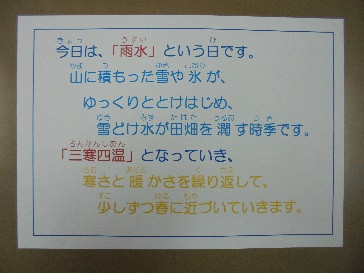 今日は、「雨水」という日です。
山に積もった雪や氷が、
ゆっくりととけはじめ、
雪どけ水が田畑を潤す時季です。
「三寒四温」となっていき、
寒さと暖かさを繰り返して、
少しずつ春に近づいていきます。